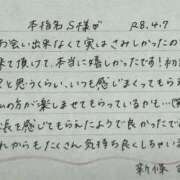 本指名 S様 R8.4.7
お会い出来なくて実はさみしかったので
来て頂けて、本当に嬉しかったです!初
と思うくらい、いつも感じまくってもらえ
の方が楽しませてもらっているかも…(笑
長を感じてもらえたようで良かったです
れからもたくさん気持ち良くしちゃいま
新條